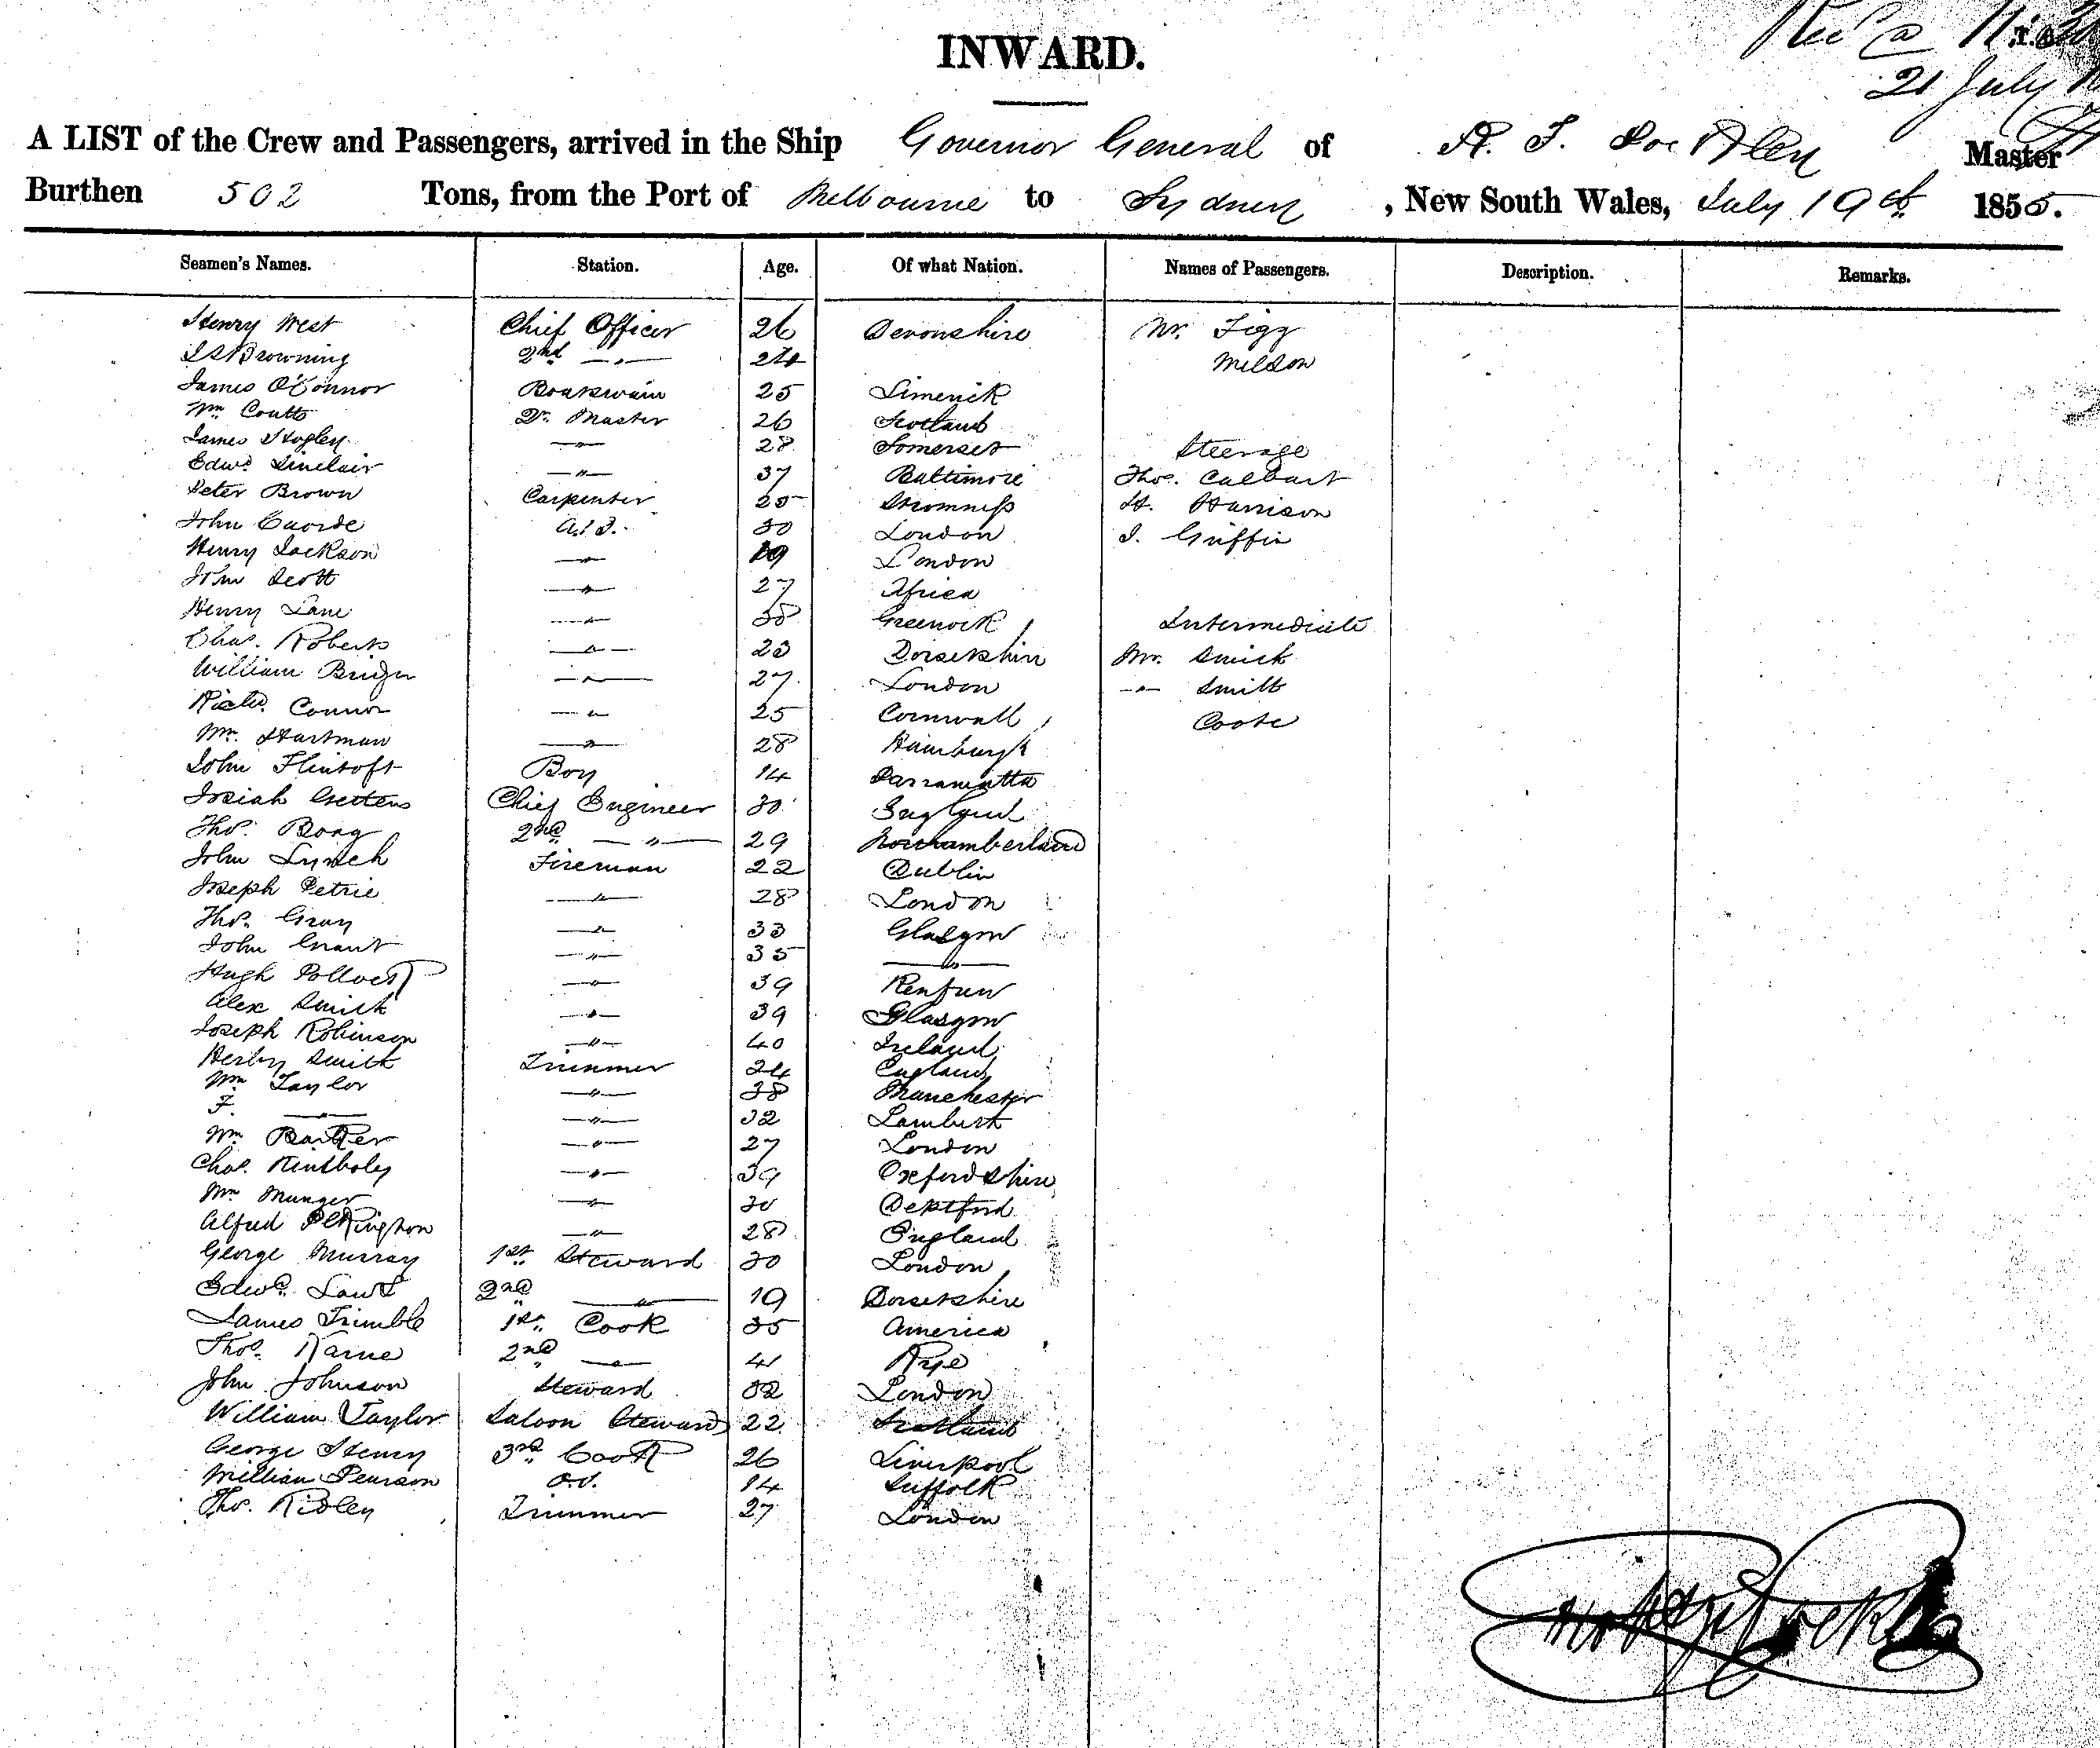 INWARD.
21 July
A LIST of the Crew and Passengers, arrived in the Ship Governor General of Master
Burthen 502 Tons, from the Port of Melbourne to Sydney, New South Wales, July 19th 1855.
Seamen's Names. Station. Age. Of what Nation. Names of Passengers. Description. Remarks.
Henry West Chief Officer 26 Devonshire Mr. Figg
Browning 2nd —"— 24
James O'Connor Boatswain 25 Limerick
Wm Coutts Qr. Master 26 Scotland
James —"— 28 Somerset Steerage
Edwd Sinclair —"— 37 Baltimore Thos.
Peter Brown Carpenter 25 Stromness H. Harrison
John A.B. 30 London J. Griffin
Henry Jackson —"— 19 London
John Scott —"— 27 Africa
Henry Lane —"— 38 Greenock Intermediate
Chas. Roberts —"— 23 Dorsetshire Mr. Smith
William —"— 27 London —"— Smith
Richd. Connor —"— 25 Cornwall Coote
Wm. Hartman —"— 28 Hamburgh
John Flintoft Boy 14 Parramatta
Josiah Chief Engineer 30 England
Thos. Boag 2nd —"— 29 Northamberland
John Lynch Fireman 22 Dublin
Joseph Petrie —"— 28 London
Thos. Gray —"— 33 Glasgow
John Grant —"— 35 —"—
Hugh Pollock —"— 39 Renfrew
Alex Smith —"— 39 Glasgow
Joseph Robinson —"— 40 Ireland
Smith Trimmer 24 England
Wm Taylor —"— 38 Manchester
F. —"— —"— 32 Lambeth
Wm Barker —"— 27 London
Chas. —"— 39 Oxfordshire
Wm Munger —"— 30 Deptford
Alfred Pilkington —"— 28 England
George Murray 1st Steward 30 London
Edwd. 2nd —"— 19 Dorsetshire
James Trimble 1st Cook 35 America
Thos. 2nd —"— 41 Rye
John Johnson Steward 32 London
William Taylor Saloon Steward 22 Scotland
George Henry 3rd Cook 26 Liverpool
William Pearson O.S. 14 Suffolk
Thos. Ridley Trimmer 27 London